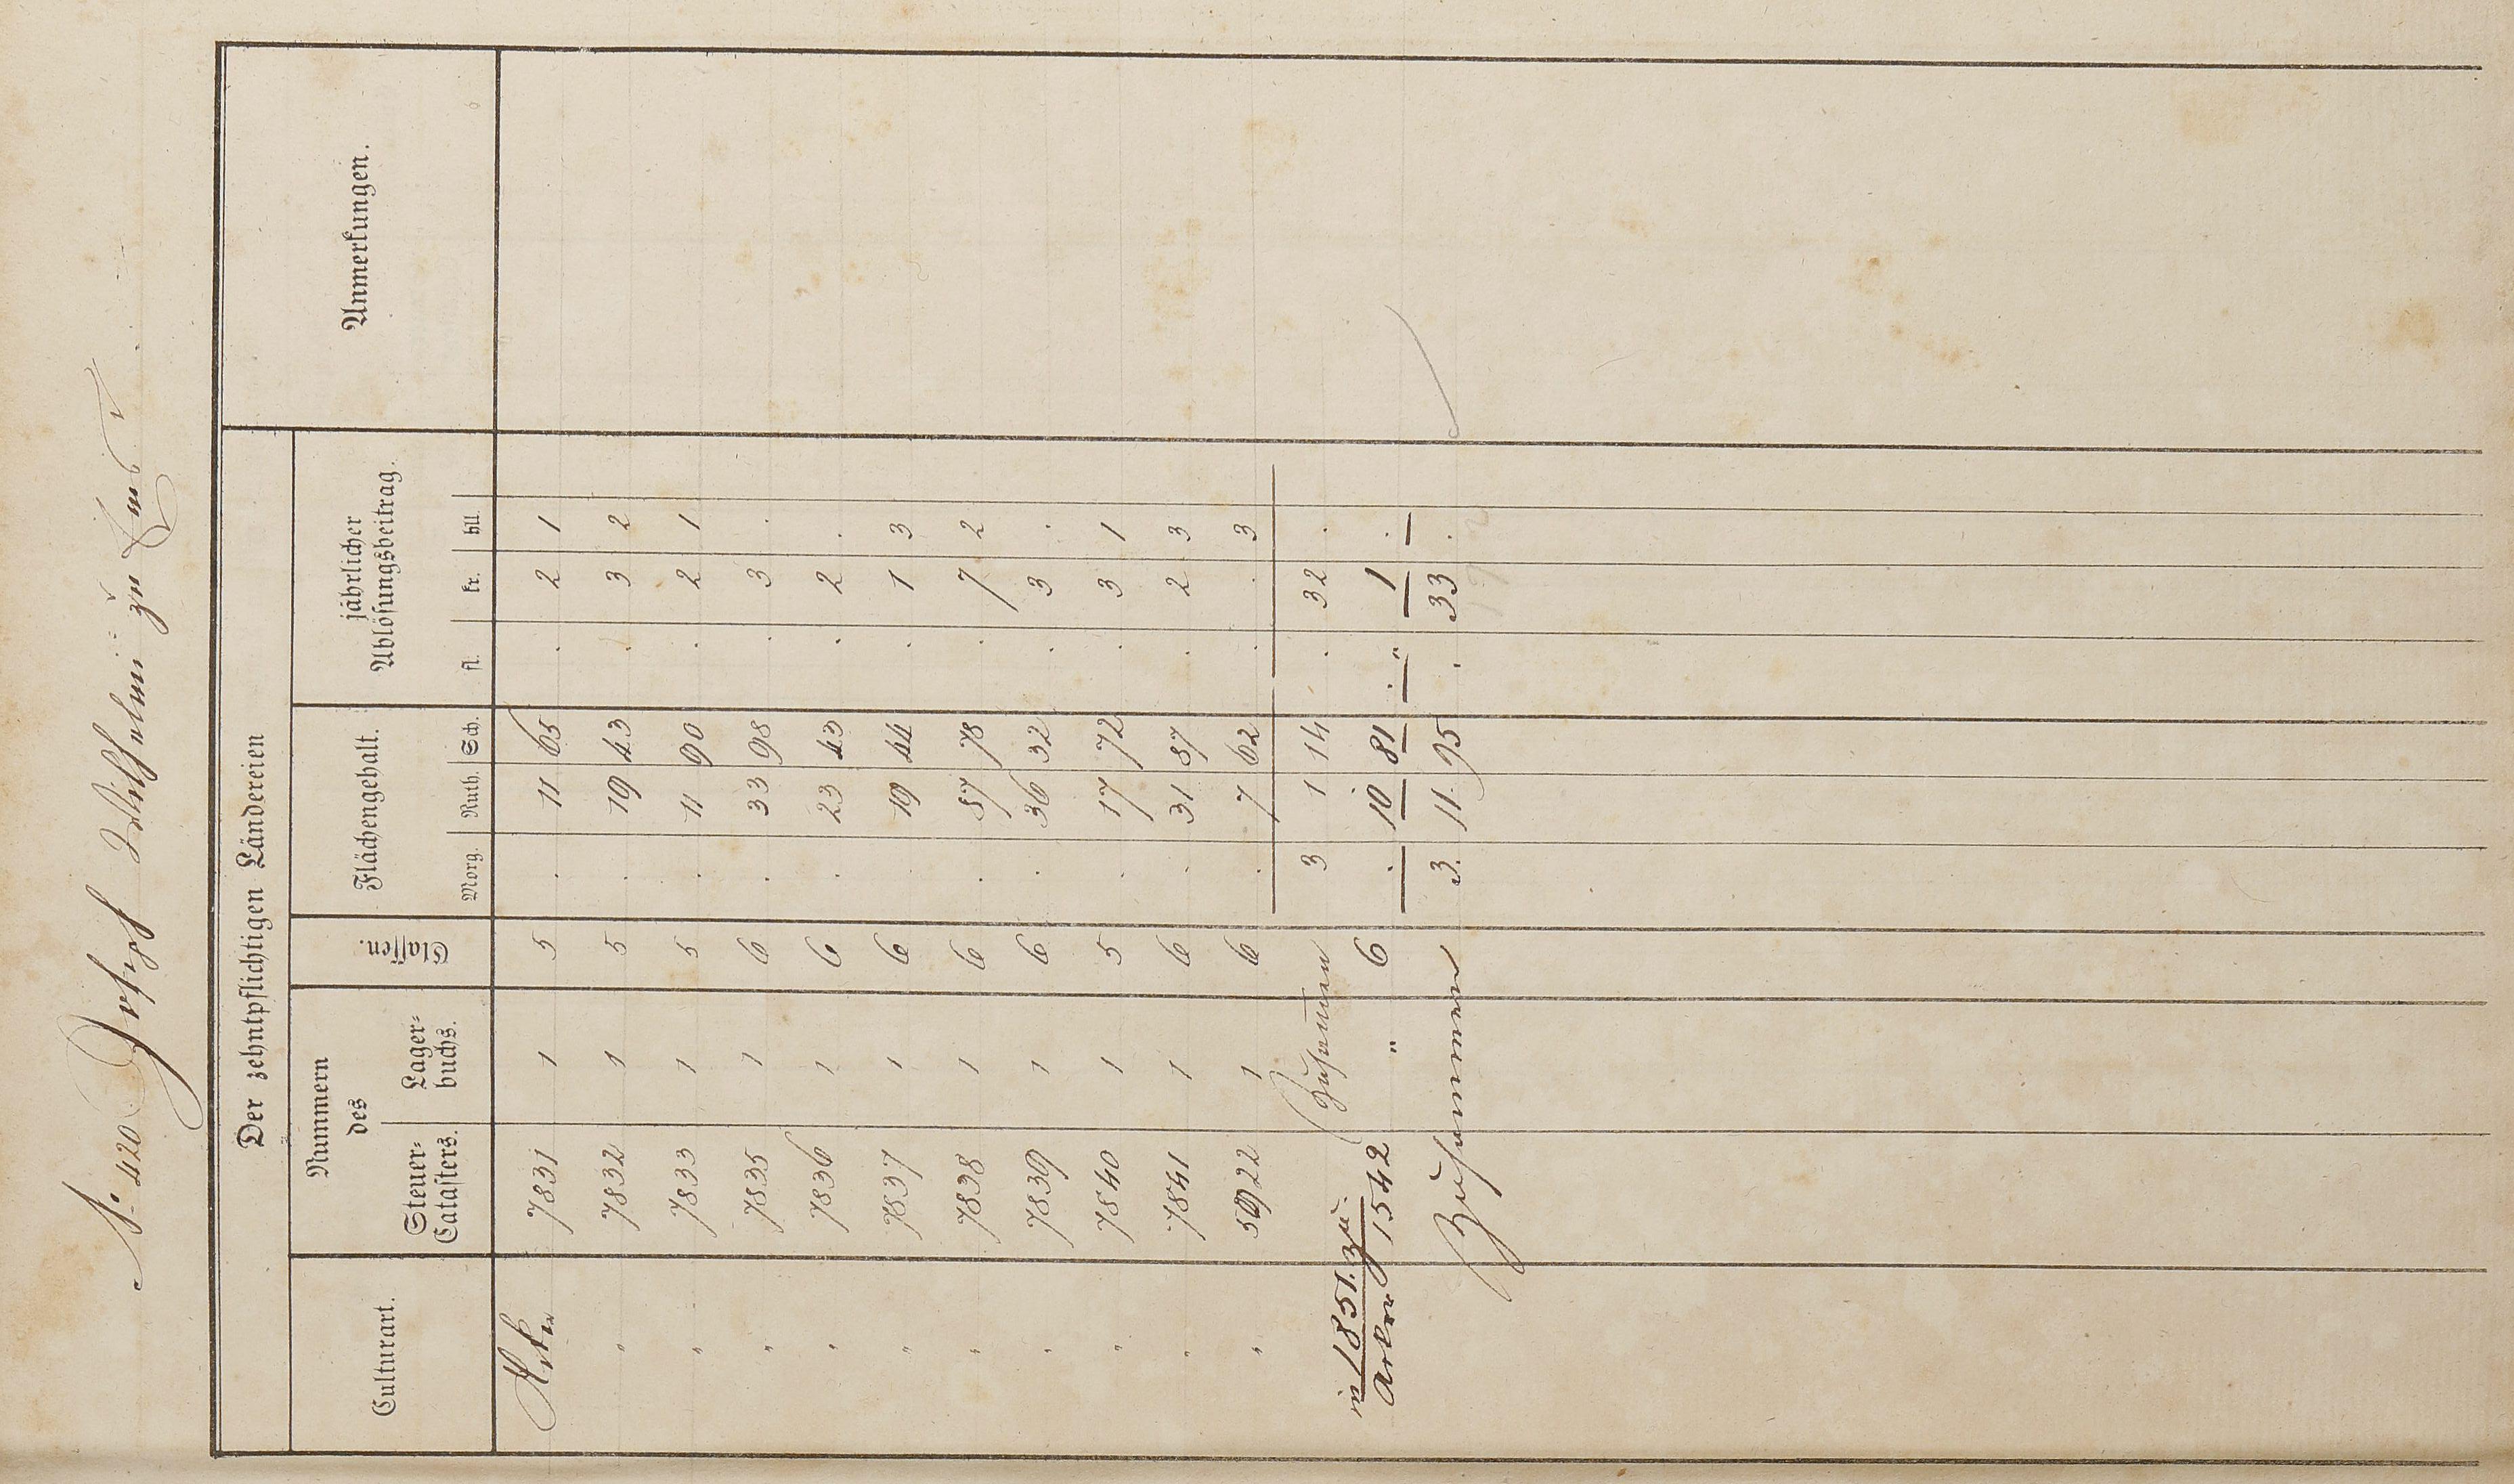 N: 420 Joseph Wilhelmi zu Ems
Der zehntpflichtigen Ländereien
Anmerkungen.
Culturart.
Nummern des
Steuer-Catasters.
Lager-buchs.
Classen.
Flächengehalt.
Morg. Ruth. Sch.
jährlicher Ablösungsbeitrag.
fl. kr. hll.
Acker 7831 1 5 . 11 65 . 2 1
" 7832 1 5 . 19 43 . 3 2
" 7833 1 5 . 11 90 . 2 1
" 7835 1 6 . 33 98 . 3 .
" 7836 1 6 . 23 43 . 2 .
" 7837 1 6 . 19 44 . 1 3
" 7838 1 6 . 87 78 . 7 2
" 7839 1 6 . 36 32 . 3 .
" 7840 1 5 . 17 72 . 3 1
" 7841 1 6 . 31 87 . 2 3
" 5922 1 6 . 7 62 . . 3
Zusammen 3 1 14 . 32 .
in 1851. zu.
Acker 1542 " 6 . 10 81 . " 1 .
Zusammen 3. 11. 95 . 33 .